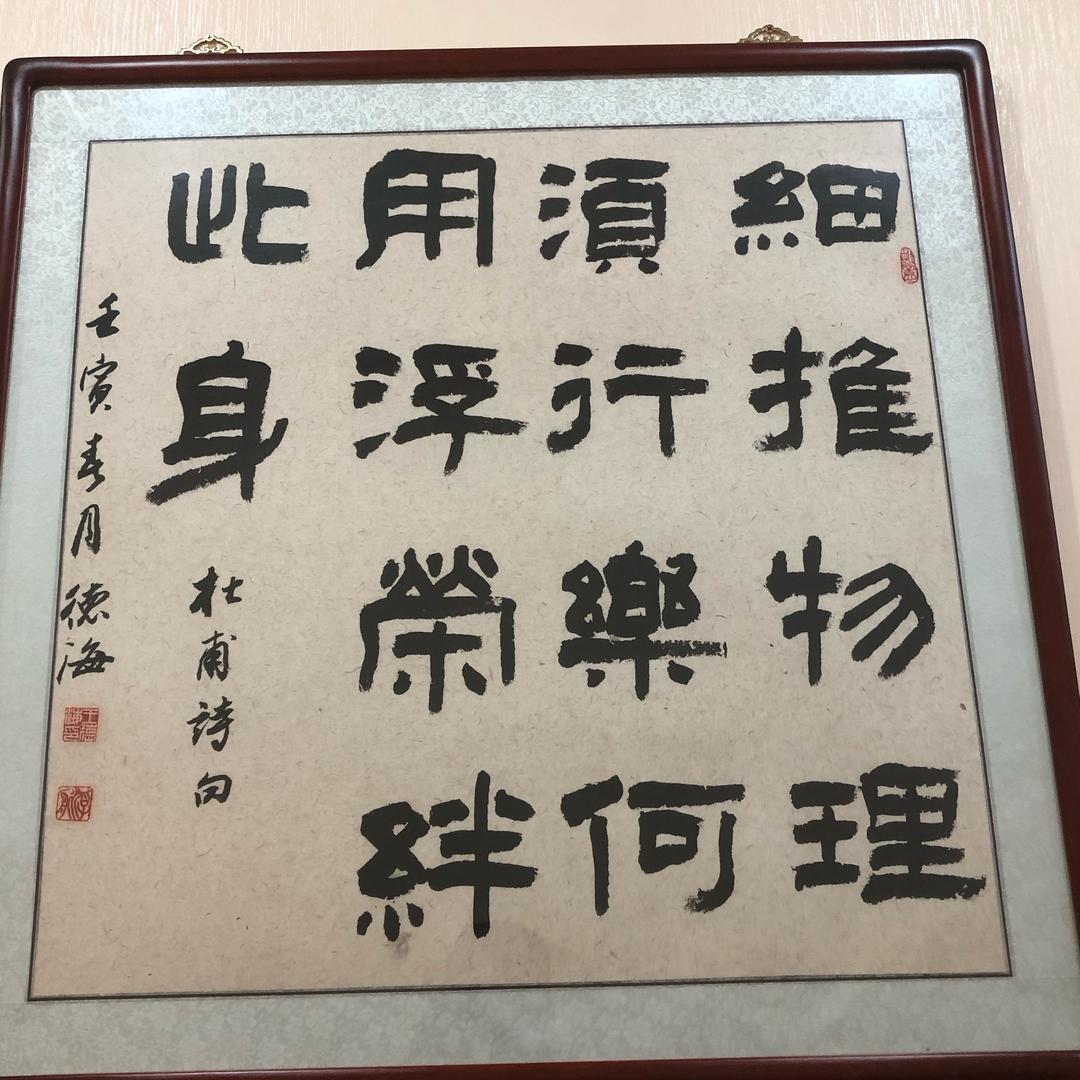 細推物理
須行樂何
用浮榮絆
此身
杜甫詩句
壬寅春月德海